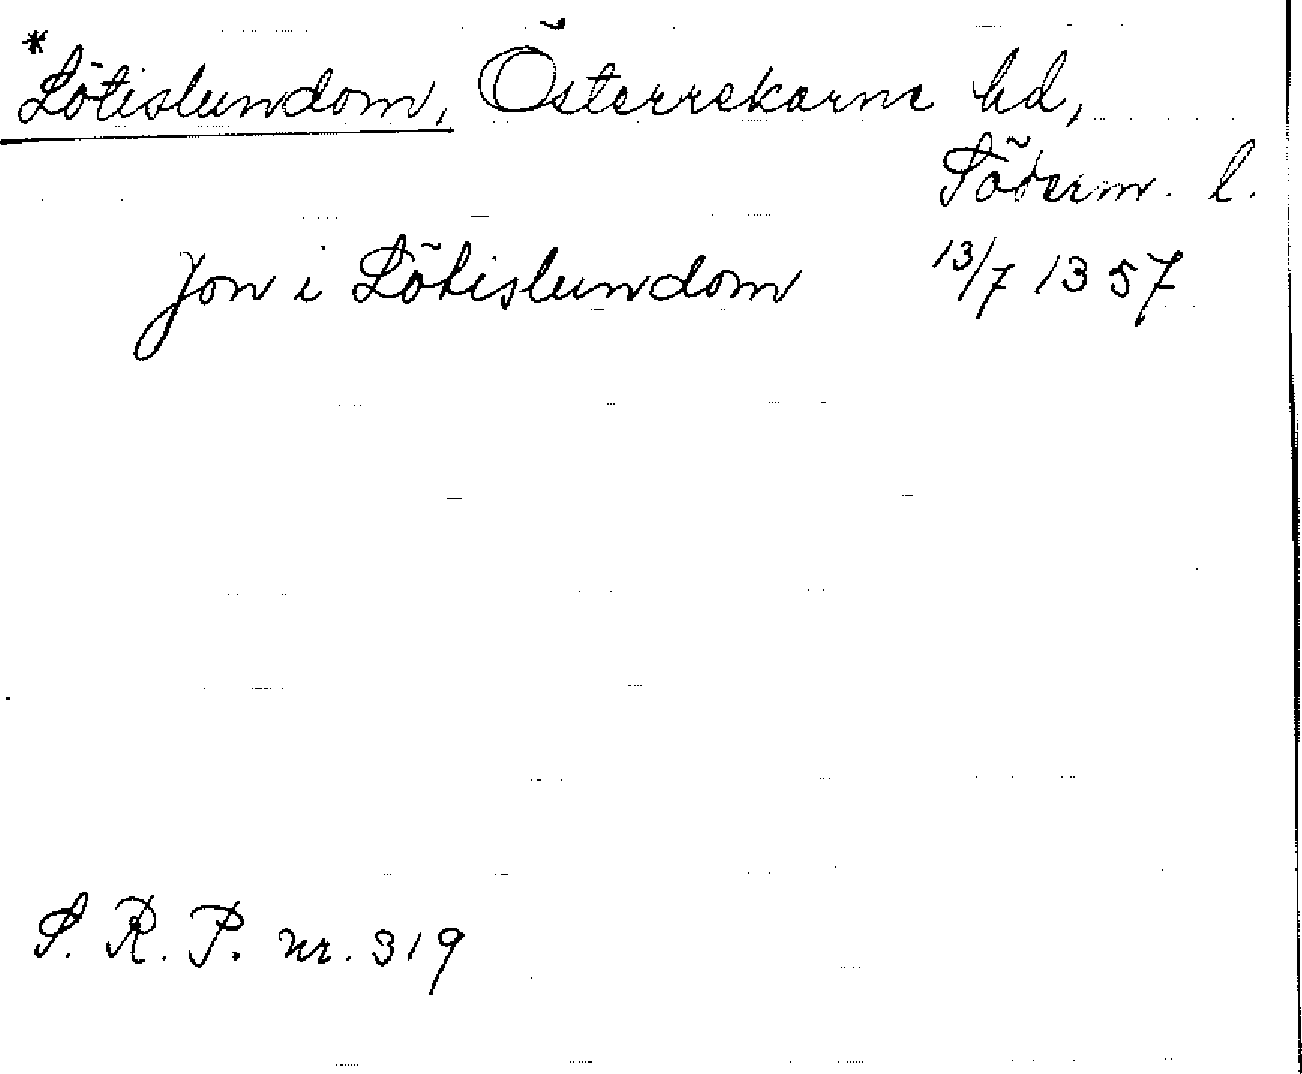 *Lötislundom, Österrekarne hd,
Söderm. l.
Jon i Lötislundom 13/7 1357
S. R. P. nr. 319